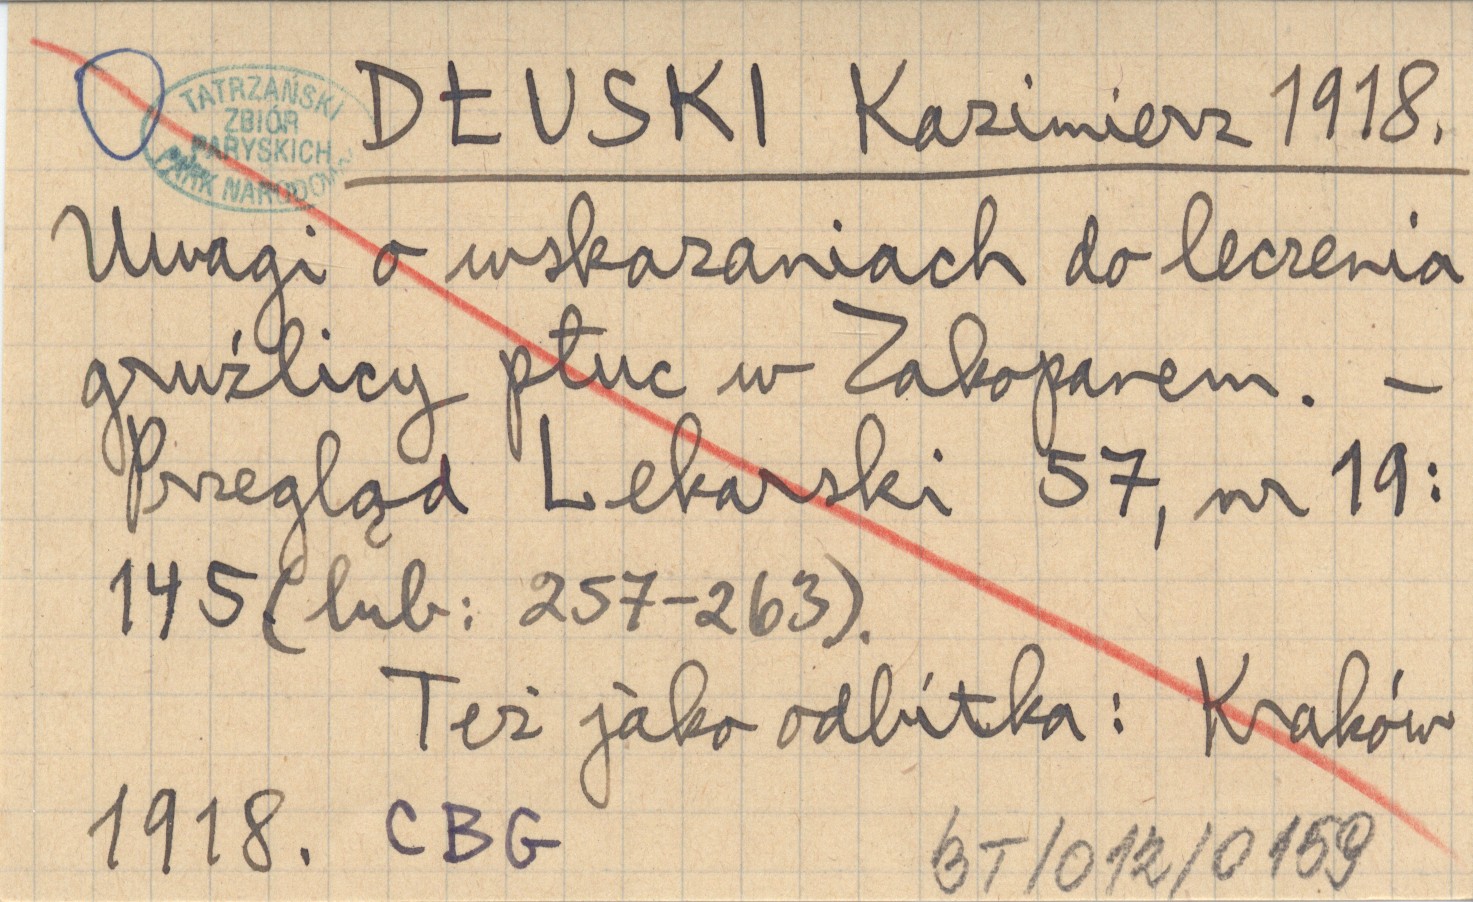 TATRZAŃSKI
ZBIÓR
PARYSKICH
PARK NARODOWY
DŁUSKI Kazimierz 1918.
Uwagi o wskazaniach do leczenia
gruźlicy płuc w Zakopanem. –
Przegląd Lekarski 57, nr 19:
145 (lub: 257-263).
Też jako odbitka: Kraków
1918. CBG
BT/012/0159